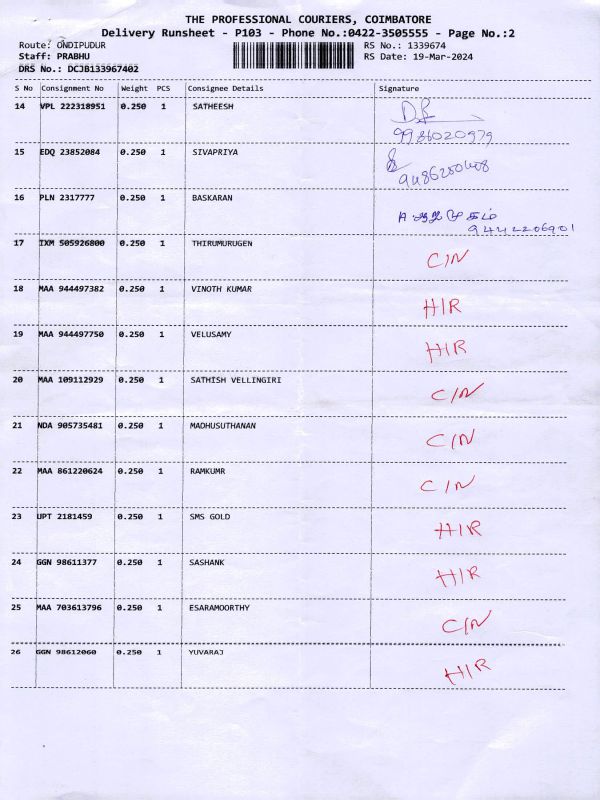 THE PROFESSIONAL COURIERS, COIMBATORE
Delivery Runsheet - P103 - Phone No.:0422-3505555 - Page No.:2
Route: ONDIPUDUR RS No.: 1339674
Staff: PRABHU RS Date: 19-Mar-2024
DRS No.: DCJB133967402
S No Consignment No Weight PCS Consignee Details Signature
14 VPL 222318951 0.250 1 SATHEESH
9986020979
15 EDQ 23852084 0.250 1 SIVAPRIYA
9486200408
16 PLN 2317777 0.250 1 BASKARAN
9442206901
17 IXM 505926800 0.250 1 THIRUMURUGEN C/N
18 MAA 944497382 0.250 1 VINOTH KUMAR H/R
19 MAA 944497750 0.250 1 VELUSAMY H/R
20 MAA 109112929 0.250 1 SATHISH VELLINGIRI C/N
21 NDA 905735481 0.250 1 MADHUSUTHANAN C/N
22 MAA 861220624 0.250 1 RAMKUMR C/N
23 UPT 2181459 0.250 1 SMS GOLD H/R
24 GGN 98611377 0.250 1 SASHANK H/R
25 MAA 703613796 0.250 1 ESARAMOORTHY C/N
26 GGN 98612060 0.250 1 YUVARAJ H/R